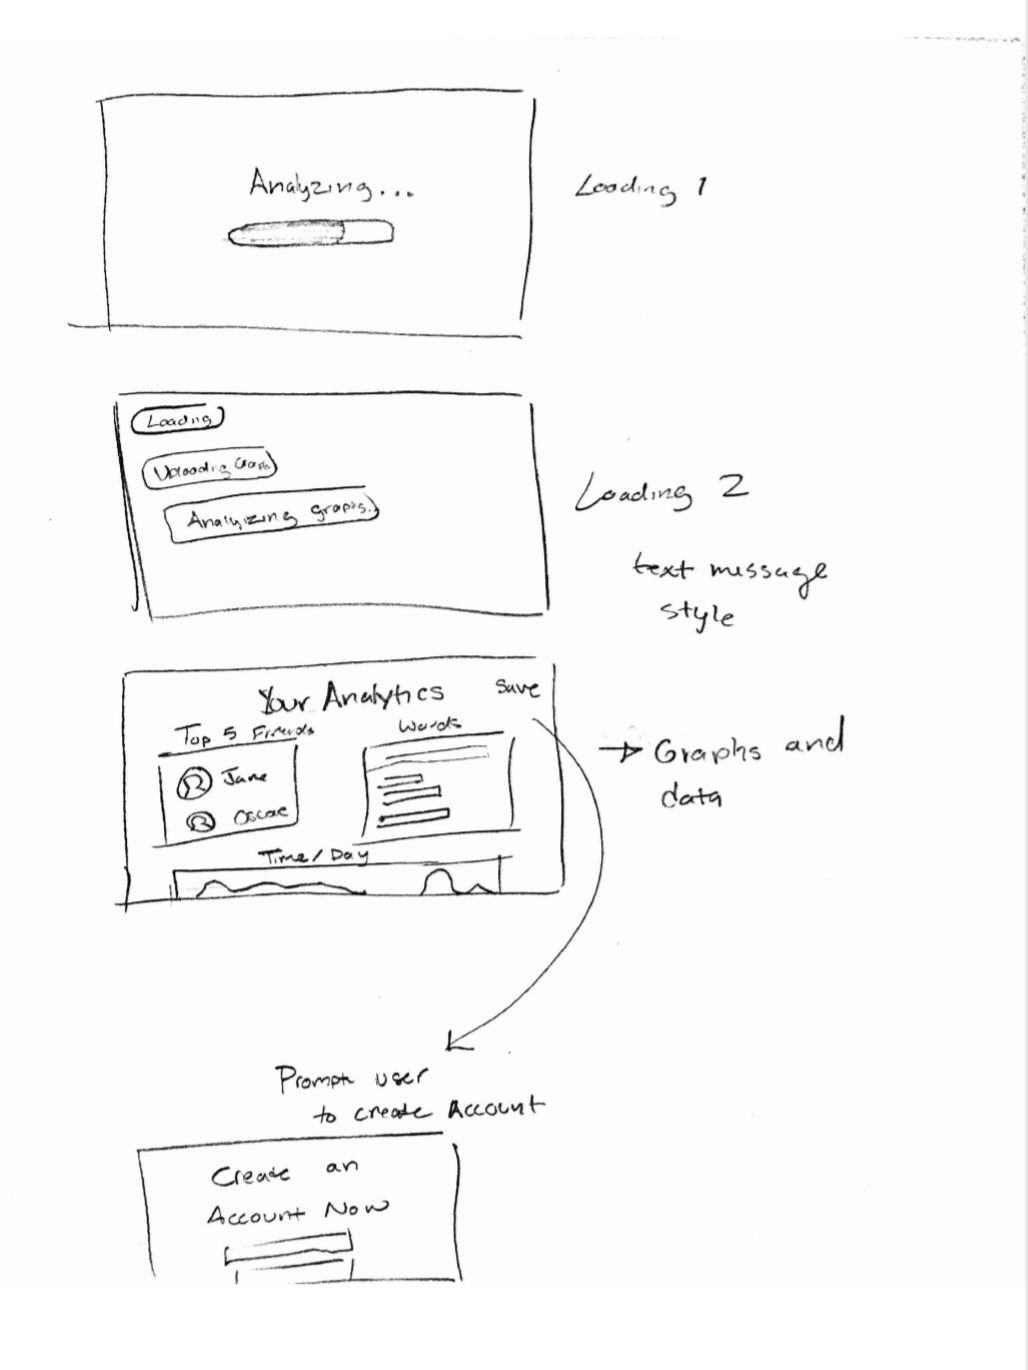 Analyzing...
Loading 1
Loading
Uploading
Analyizing graphs..
Loading 2
text message
style
Your Analytics
Save
Top 5 Friends
Words
Jane
Oscar
Time/Day
→ Graphs and
data
Prompt user
to create Account
Create an
Account Now